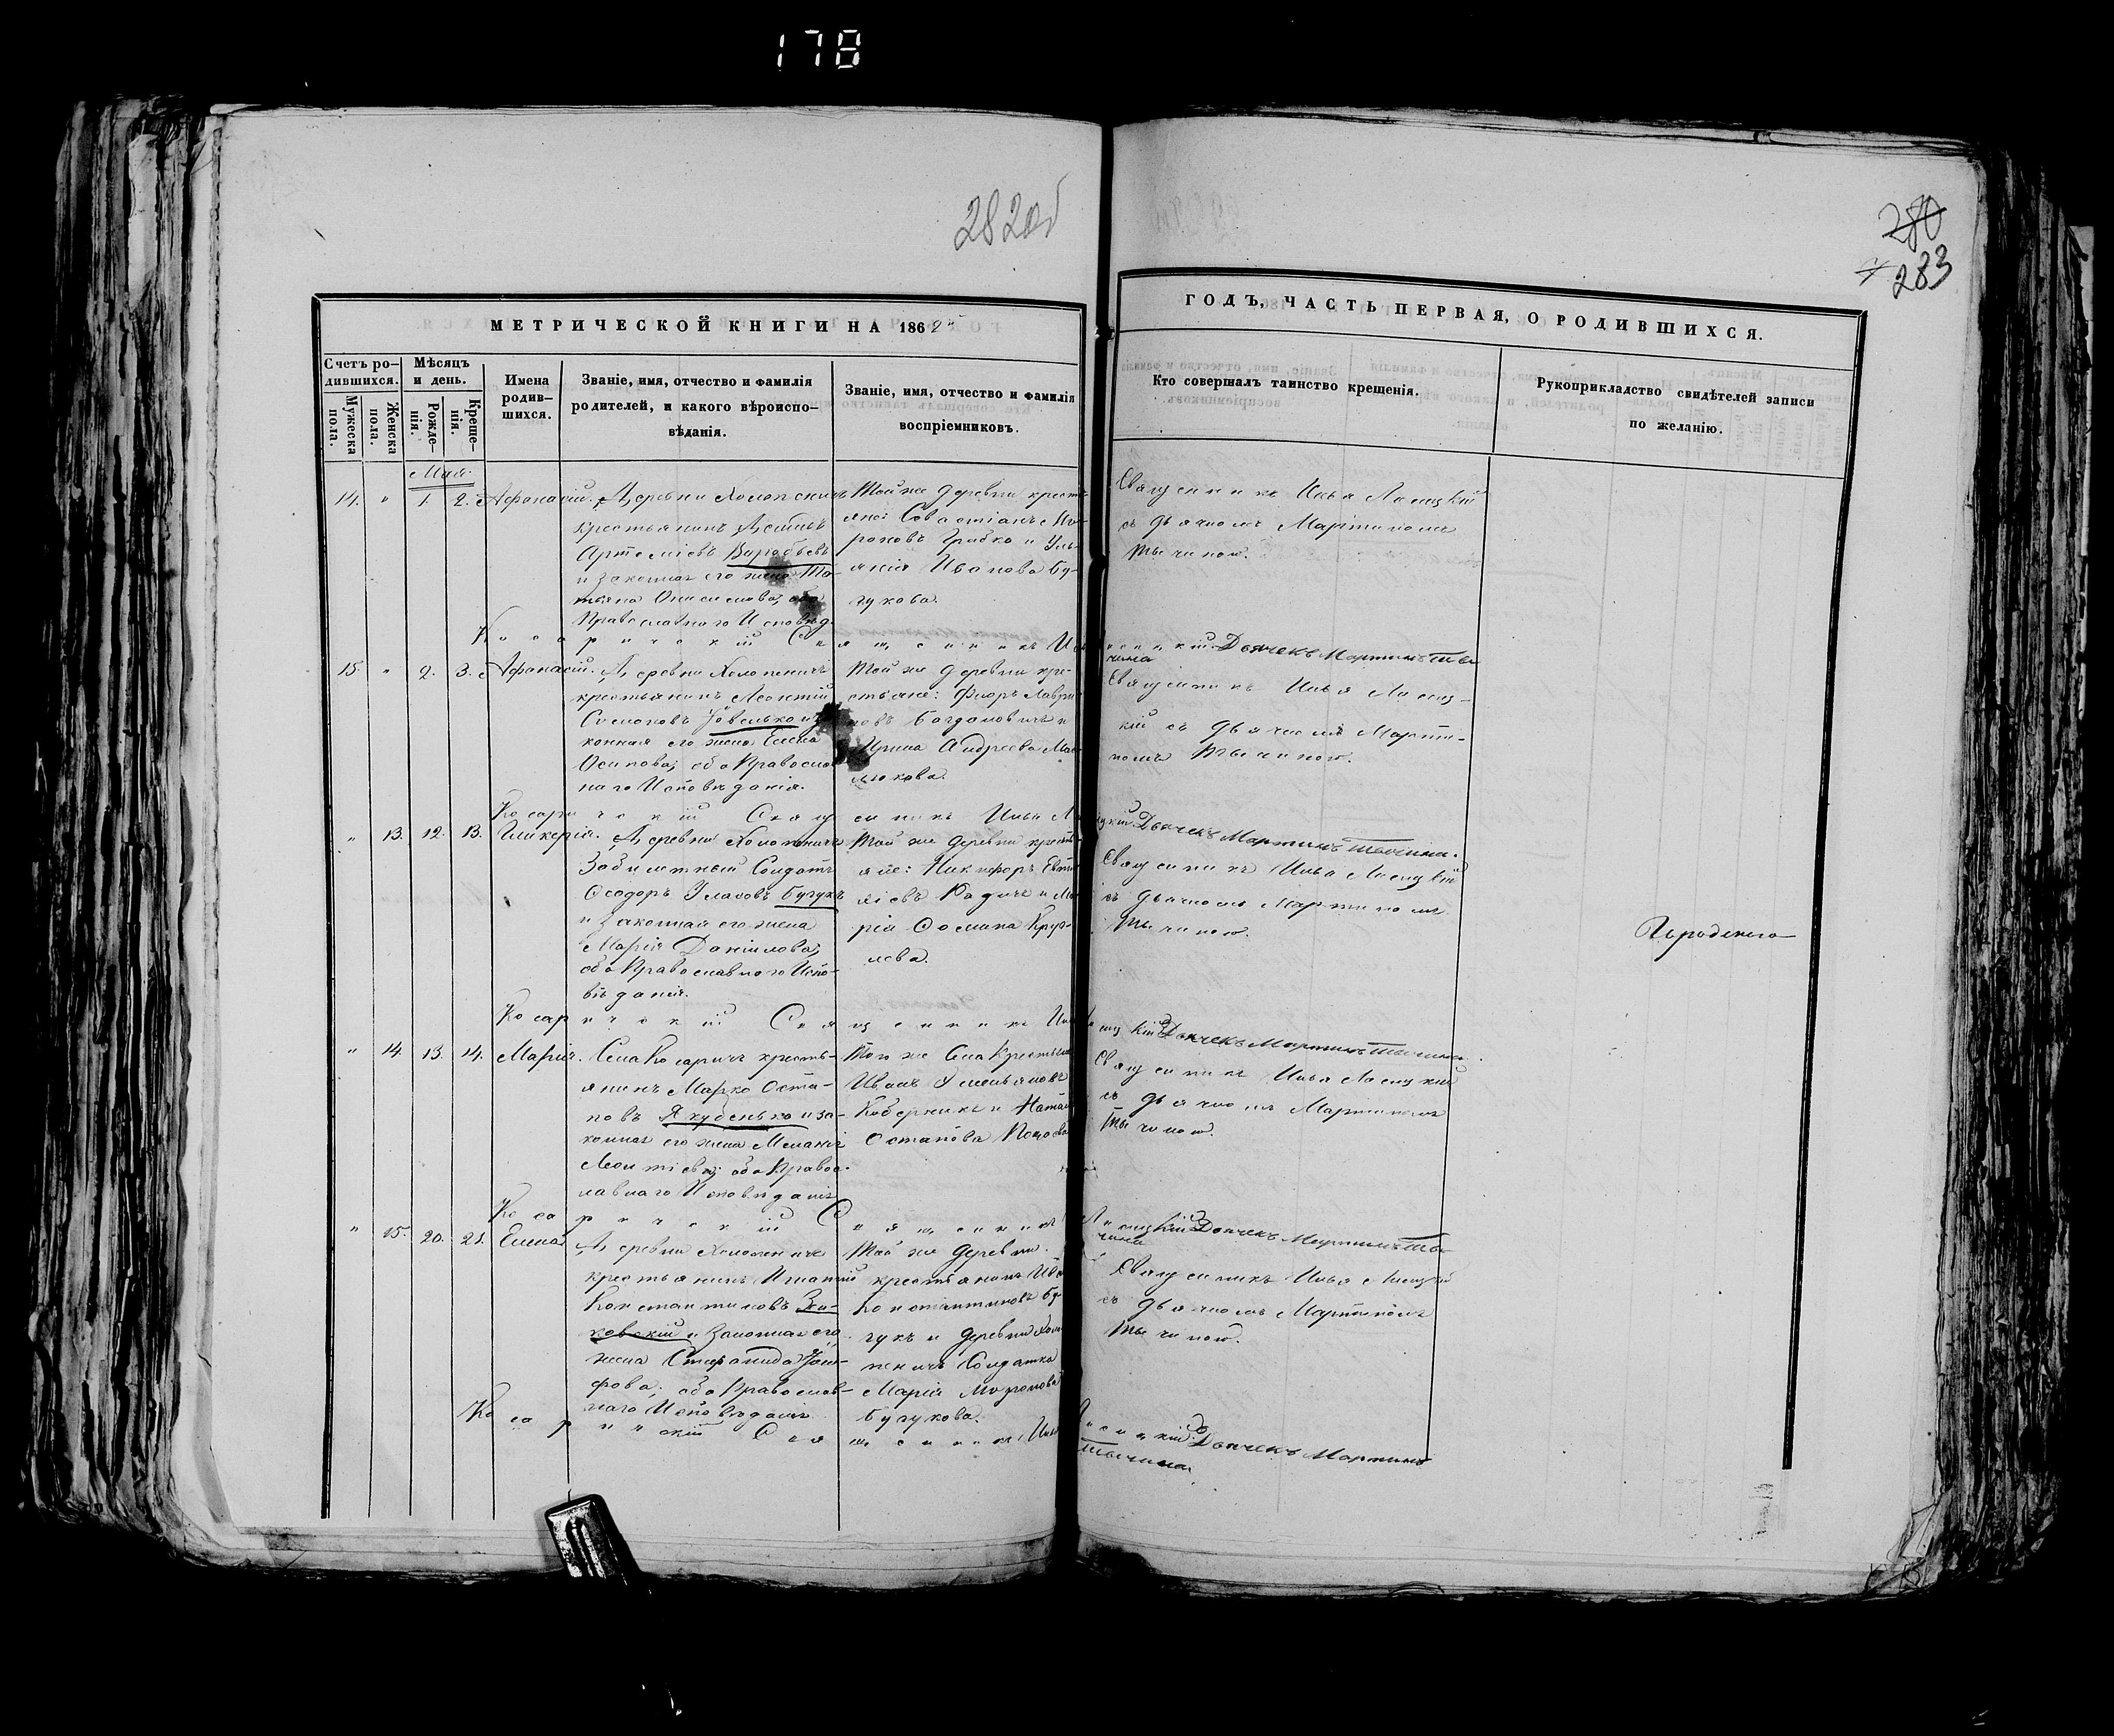 178
282об
280
283
МЕТРИЧЕСКОЙ КНИГИ НА 1862й
ГОДЪ, ЧАСТЬ ПЕРВАЯ, О РОДИВШИХСЯ.
Счетъ ро-
дившихся.
Мужеска пола.
Женска пола.
Мѣсяцъ
и день.
Рожде-
нія.
Креще-
нія.
Имена
родив-
шихся.
Званіе, имя, отчество и фамилія
родителей, и какого вѣроиспо-
вѣданія.
Званіе, имя, отчество и фамилія
воспріемниковъ.
Кто совершалъ таинство крещенія.
Рукоприкладство свидѣтелей записи
по желанію.
Мая
14. " 1. 2. Афанасій.
Деревни Холопеничъ
крестьянинъ
Артеміевъ
и законная его жена Та-
тьяна Онисимова, оба
Православного Исповѣд.
Той же деревни кресть-
яне: Савастіанъ Ми-
роновъ Грибко и Уль-
янія Иванова Бу-
гукова.
Священникъ Илья Лисицкій
съ дьячкомъ Мартиномъ
Тычиною.
Косаричскій Священникъ Илья Лисицкій Дьячекъ Мартинъ Ты-
чина
15. " 2. 3. Афанасій.
Деревни Холопеничъ
крестьянинъ Леонтій
Симоновъ
конная его жена Елена
Осипова; оба Православ-
наго Исповѣданія.
Той же деревни кре-
стьяне: Флоръ Лаври-
новъ Богдановичъ и
Ирина Андреева
Священникъ Илья Лисиц-
кій съ дьячкомъ Марти-
номъ Тычиною.
Косаричскій Священникъ Илья Лисицкій Дьячекъ Мартинъ Тычина.
" 13. 12. 13. Гликерія.
Деревни Холопеничъ
Забилетный Солдатъ
Ѳеодоръ Бугукъ
и законная его жена
Марія Даніилова;
оба Православнаго Испо-
вѣданія.
Той же деревни кресть-
яне: Никифоръ
Радичъ и Ма-
рія Ѳомина Круг-
лева.
Священникъ Илья Лисицкій
съ дьячкомъ Мартиномъ
Тычиною.
Косаричскій Священникъ Илья Лисицкій Дьячекъ Мартинъ Тычина.
" 14. 13. 14. Марія.
Села Косаричъ кресть-
янинъ Марко Оста-
повъ Якубенько и за-
конная его жена Меланія
Леонтіева; оба Правос-
лавнаго Исповѣданія
Того же Села крестьяне
Иванъ Емельяновъ
Коберникъ и
Остапова
Священникъ Илья Лисицкій
съ дьячкомъ Мартиномъ
Тычиною.
Косаричскій Священникъ Лисицкій Дьячекъ Мартинъ Ты-
чина
" 15. 20. 21. Елена
Деревни Холопеничъ
крестьянинъ Игнатій
Константиновъ
и законная его
жена Стефанида
оба Православ-
наго Исповѣданія
Той же деревни
крестьянинъ
Константиновъ Бу-
гукъ и деревни Холо-
пеничъ Солдатка
Марія Миронова
Бугукова.
Священникъ Илья Лисицкій
съ дьячкомъ Мартиномъ
Тычиною.
Косаричскій Священникъ Илья Лисицкій Дьячекъ Мартинъ
Тычина.